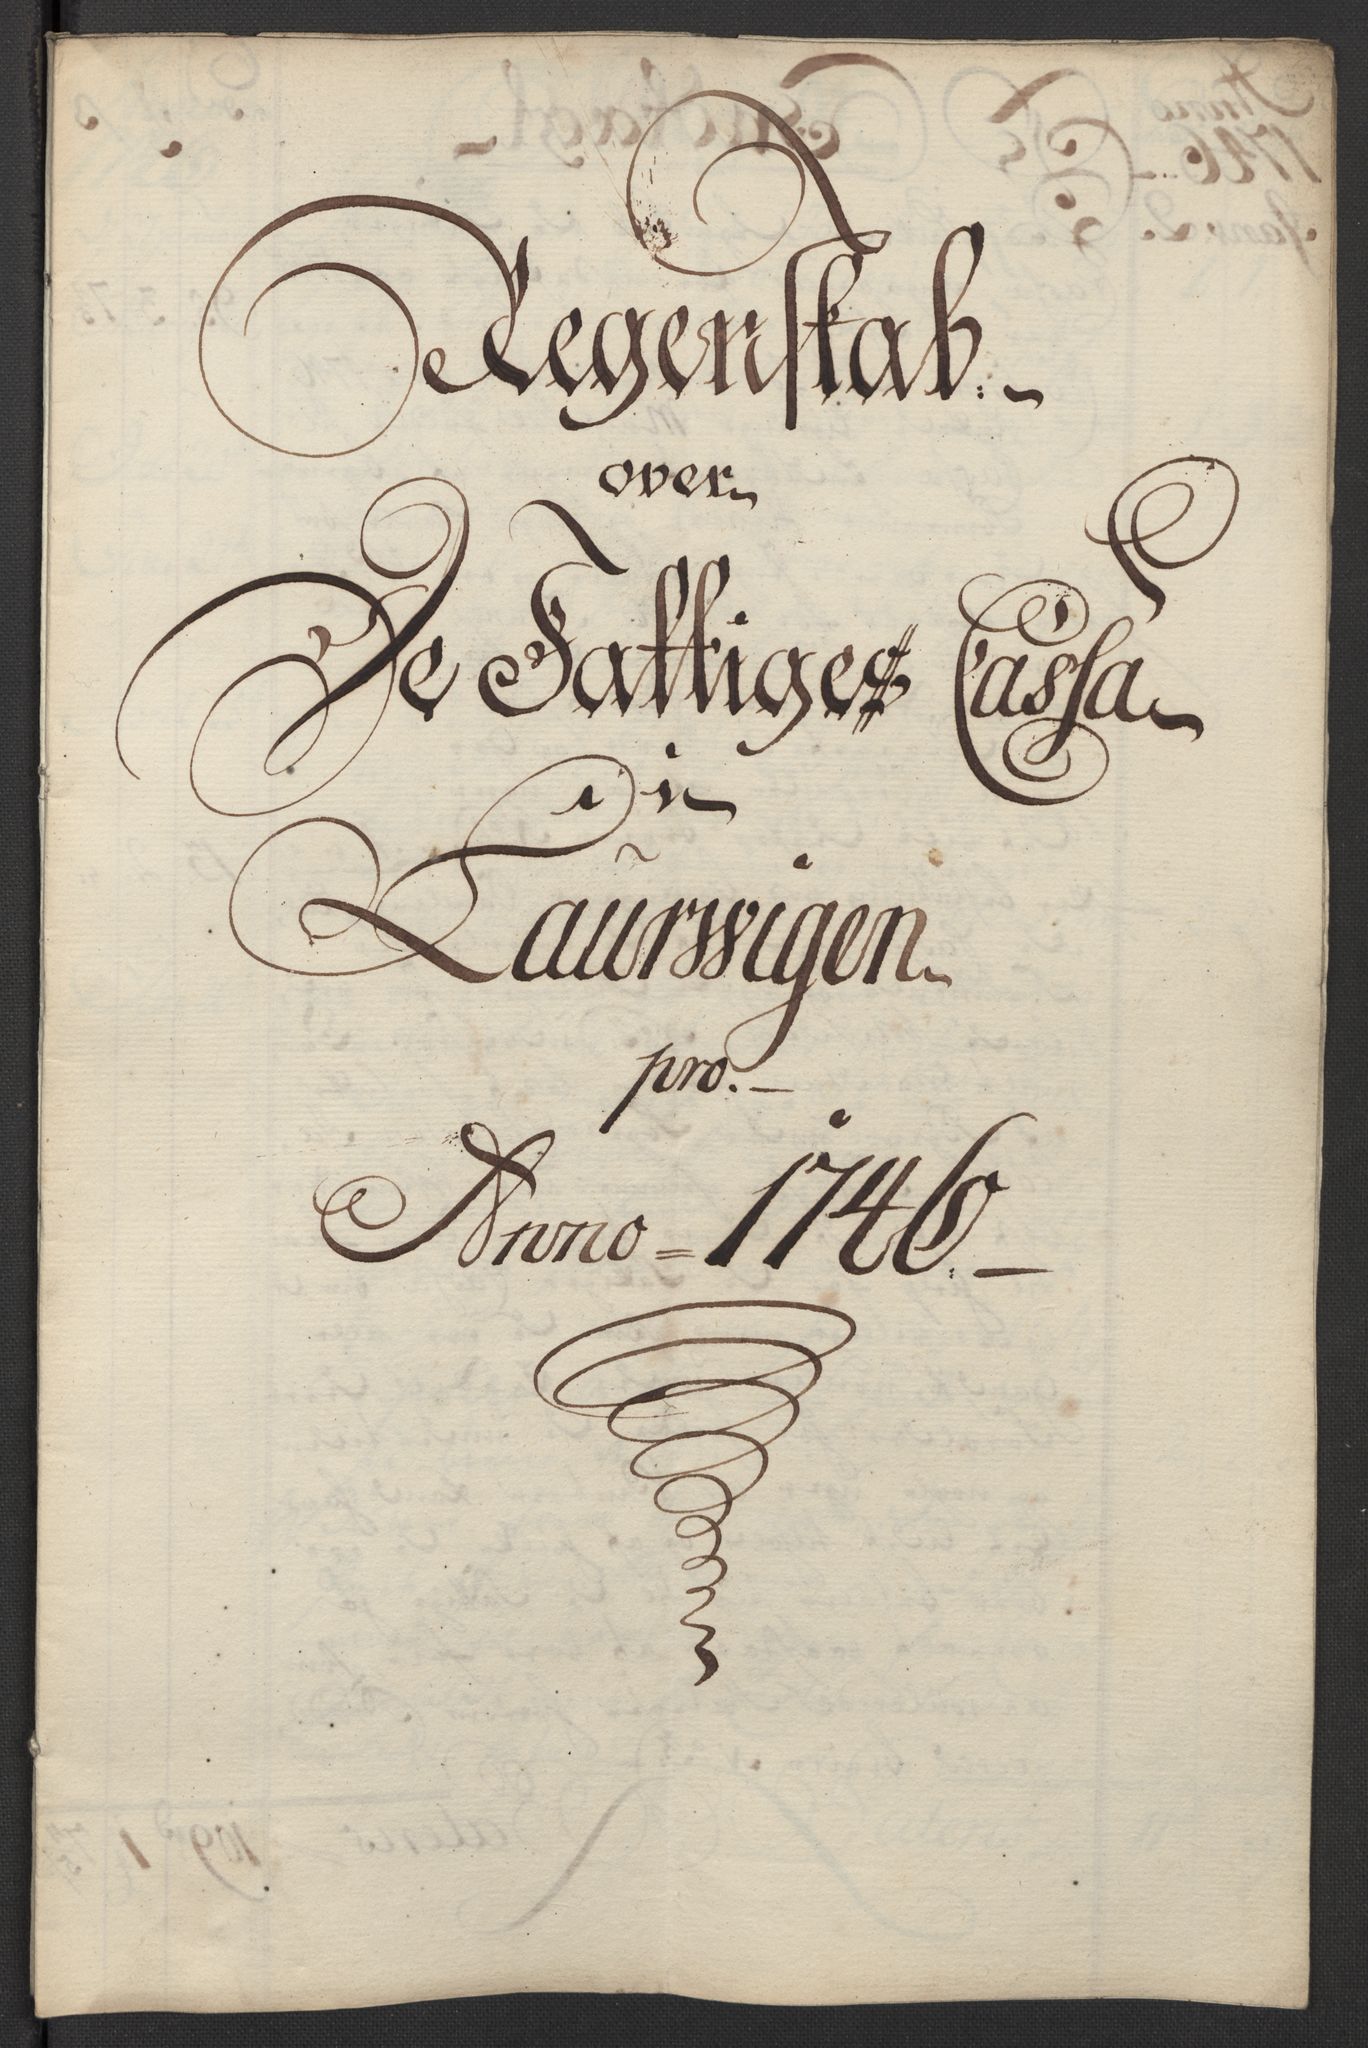 Regenskab
over
De Fattiges Cassa
i
Laurwigen
pro.
Anno = 1746.